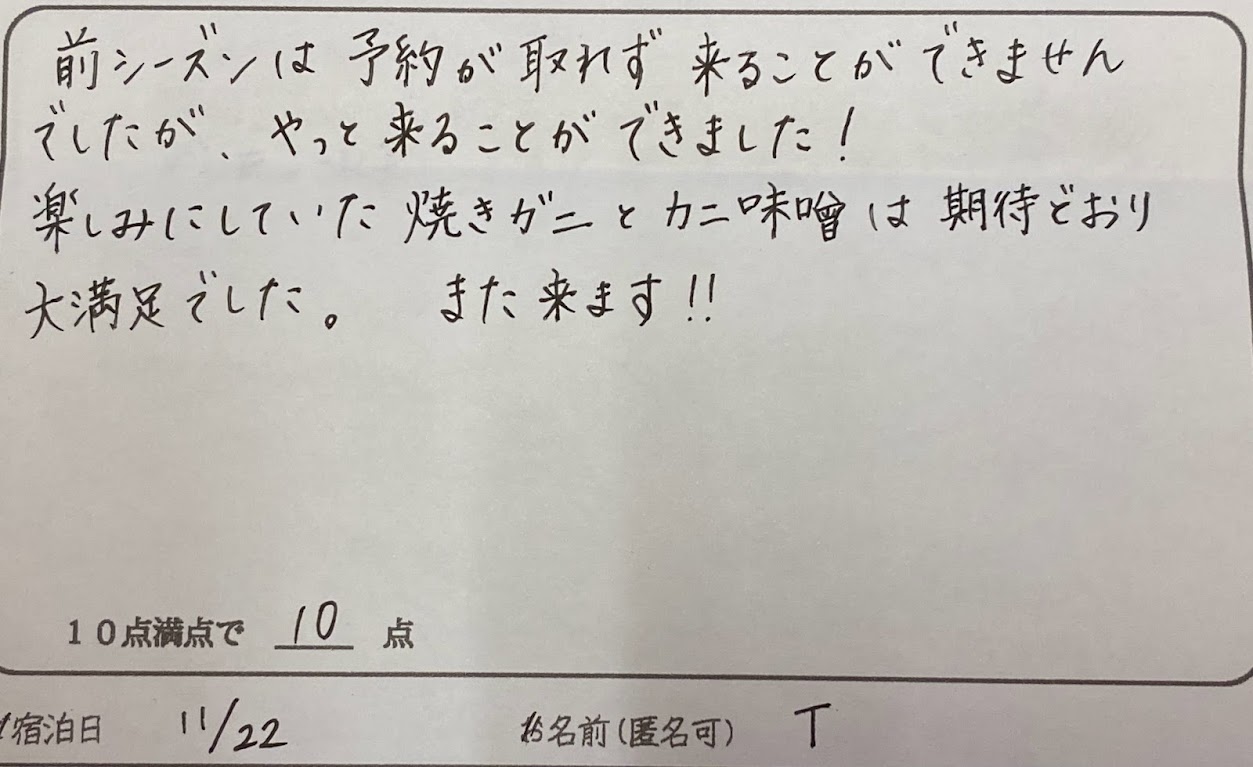 前シーズンは予約が取れず来ることができません
でしたが、やっと来ることができました!
楽しみにしていた焼きガニとカニ味噌は期待どおり
大満足でした。 また来ます!!
10点満点で 10 点
宿泊日 11/22
お名前(匿名可) T